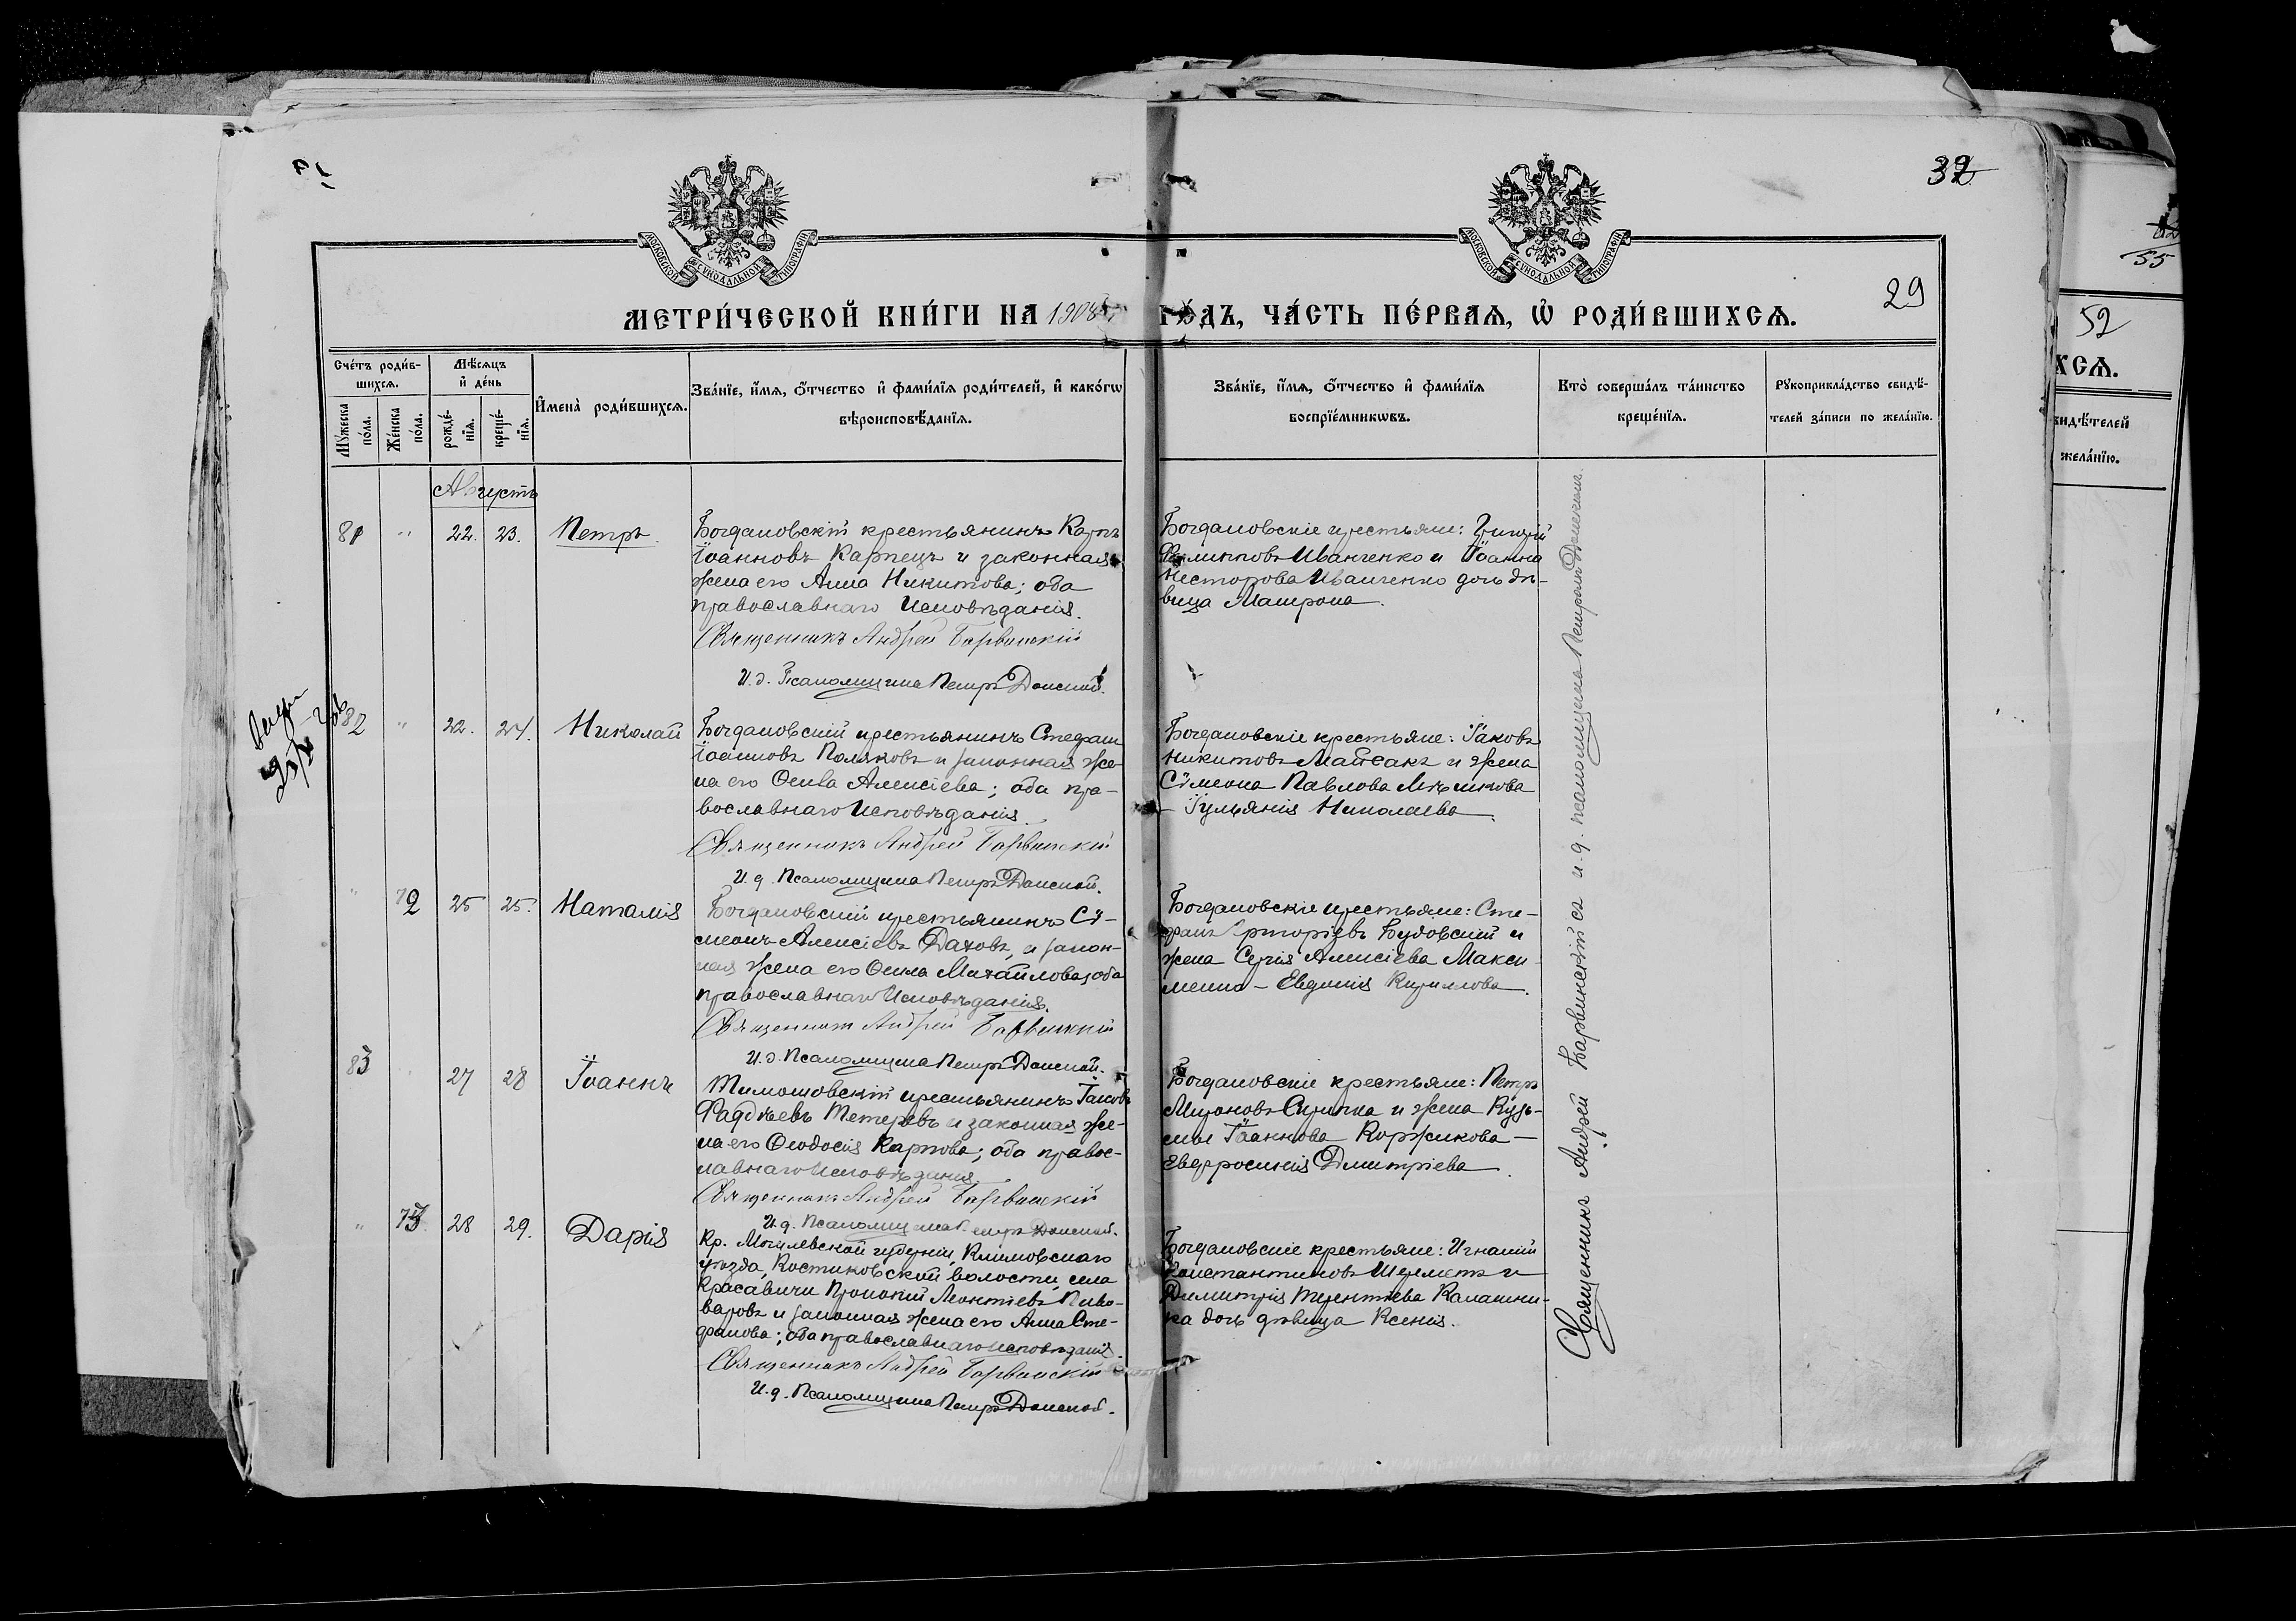 32
29
МОСКОВСКОЙ СѴНОДАЛЬНОЙ ТИПОГРАФІИ
МОСКОВСКОЙ СѴНОДАЛЬНОЙ ТИПОГРАФІИ
МЕТРИ́ЧЕСКОЙ КНИ́ГИ НА 1908 ГО́ДЪ, ЧА́СТЬ ПЕ́РВАѦ, Ѡ҆ РОДИ́ВШИХСѦ.
Сче́тъ роди́в-
шихсѧ.
Мꙋ́жеска по́ла.
Же́нска по́ла.
Мѣ́сѧцъ
и҆ де́нь
рожде́-
нїѧ.
креще́-
нїѧ.
И҆мена̀ роди́вшихсѧ.
Зва́нїе, и҆́мѧ, ѻ҆́тчество и҆ фами́лїѧ роди́телей, и҆ како́гѡ
вѣроисповѣ́данїѧ.
Зва́нїе, и҆́мѧ, ѻ҆́тчество и҆ фами́лїѧ
воспрїе́мникѡвъ.
Кто̀ соверша́лъ та́инство
креще́нїѧ.
Рꙋкоприкла́дство свидѣ́-
телей за́писи по жела́нїю.
Августъ
81 " 22. 23. Петръ.
Богдановскій крестьянинъ Карпъ
Іоанновъ Карпецъ и законная
жена его Анна Никитова; оба
православнаго исповѣданія.
Священникъ Андрей Барвинскій
И. д. Псаломщика Петръ Донской.
Богдановскіе крестьяне: Григорій
Филипповъ Иванченко и Іоанна
Несторова Иванченко дочь дѣ-
вица Матрона.
82 " 22. 24. Николай
Богдановскій крестьянинъ Стефанъ
Іоанновъ Поляковъ и законная же-
на его Алексіева; оба пра-
вославнаго исповѣданія.
Священникъ Андрей Барвинскій
И. д. Псаломщика Петръ Донской.
Богдановскіе крестьяне: Іаковъ
Никитовъ Майсакъ и жена
Сѵмеона Павлова
Іульянія Николаева.
" 72 25 25. Наталія
Богдановскій крестьянинъ Сѵ-
меонъ Алексіевъ Даховъ, и закон-
ная жена его Михайлова; оба
православнаго исповѣданія.
Священникъ Андрей Барвинскій
И. д. Псаломщика Петръ Донской.
Богдановскіе крестьяне: Сте-
фанъ Григоріевъ Будовскій и
жена Сергія Алексіева Макси-
менко – Евдокія Кириллова.
83 27 28 Іоаннъ
Тимошовскій крестьянинъ Іаковъ
Фаддѣевъ Тетеревъ и законная же-
на его Ѳеодосія Карпова; оба правос-
лавнаго исповѣданія.
Священникъ Андрей Барвинскій
И. д. Псаломщика Петръ Донской.
Богдановскіе крестьяне: Петръ
Мироновъ Скрипка и жена Кузь-
мы Іоаннова Коржикова –
Евфросинія Димитріева.
" 73. 28 29. Дарія
Кр. Могилевской губерніи, Климовскаго
уѣзда, Костюковской волости, села
Красавичи Прокопій Леонтіевъ Пиво-
варовъ и законная жена его Анна Сте-
фанова; оба православнаго исповѣданія.
Священникъ Андрей Барвинскій
И. д. Псаломщика Петръ Донской.
Богдановскіе крестьяне: Игнатій
Константиновъ Шереметъ и
Димитрія Терентіева Калашни-
ка дочь дѣвица Ксенія.
Священникъ Андрей Барвинскій съ и. д. псаломщика Петромъ Донскимъ.
55
52
ХСѦ.
видѣ́телей
жела́нїю.